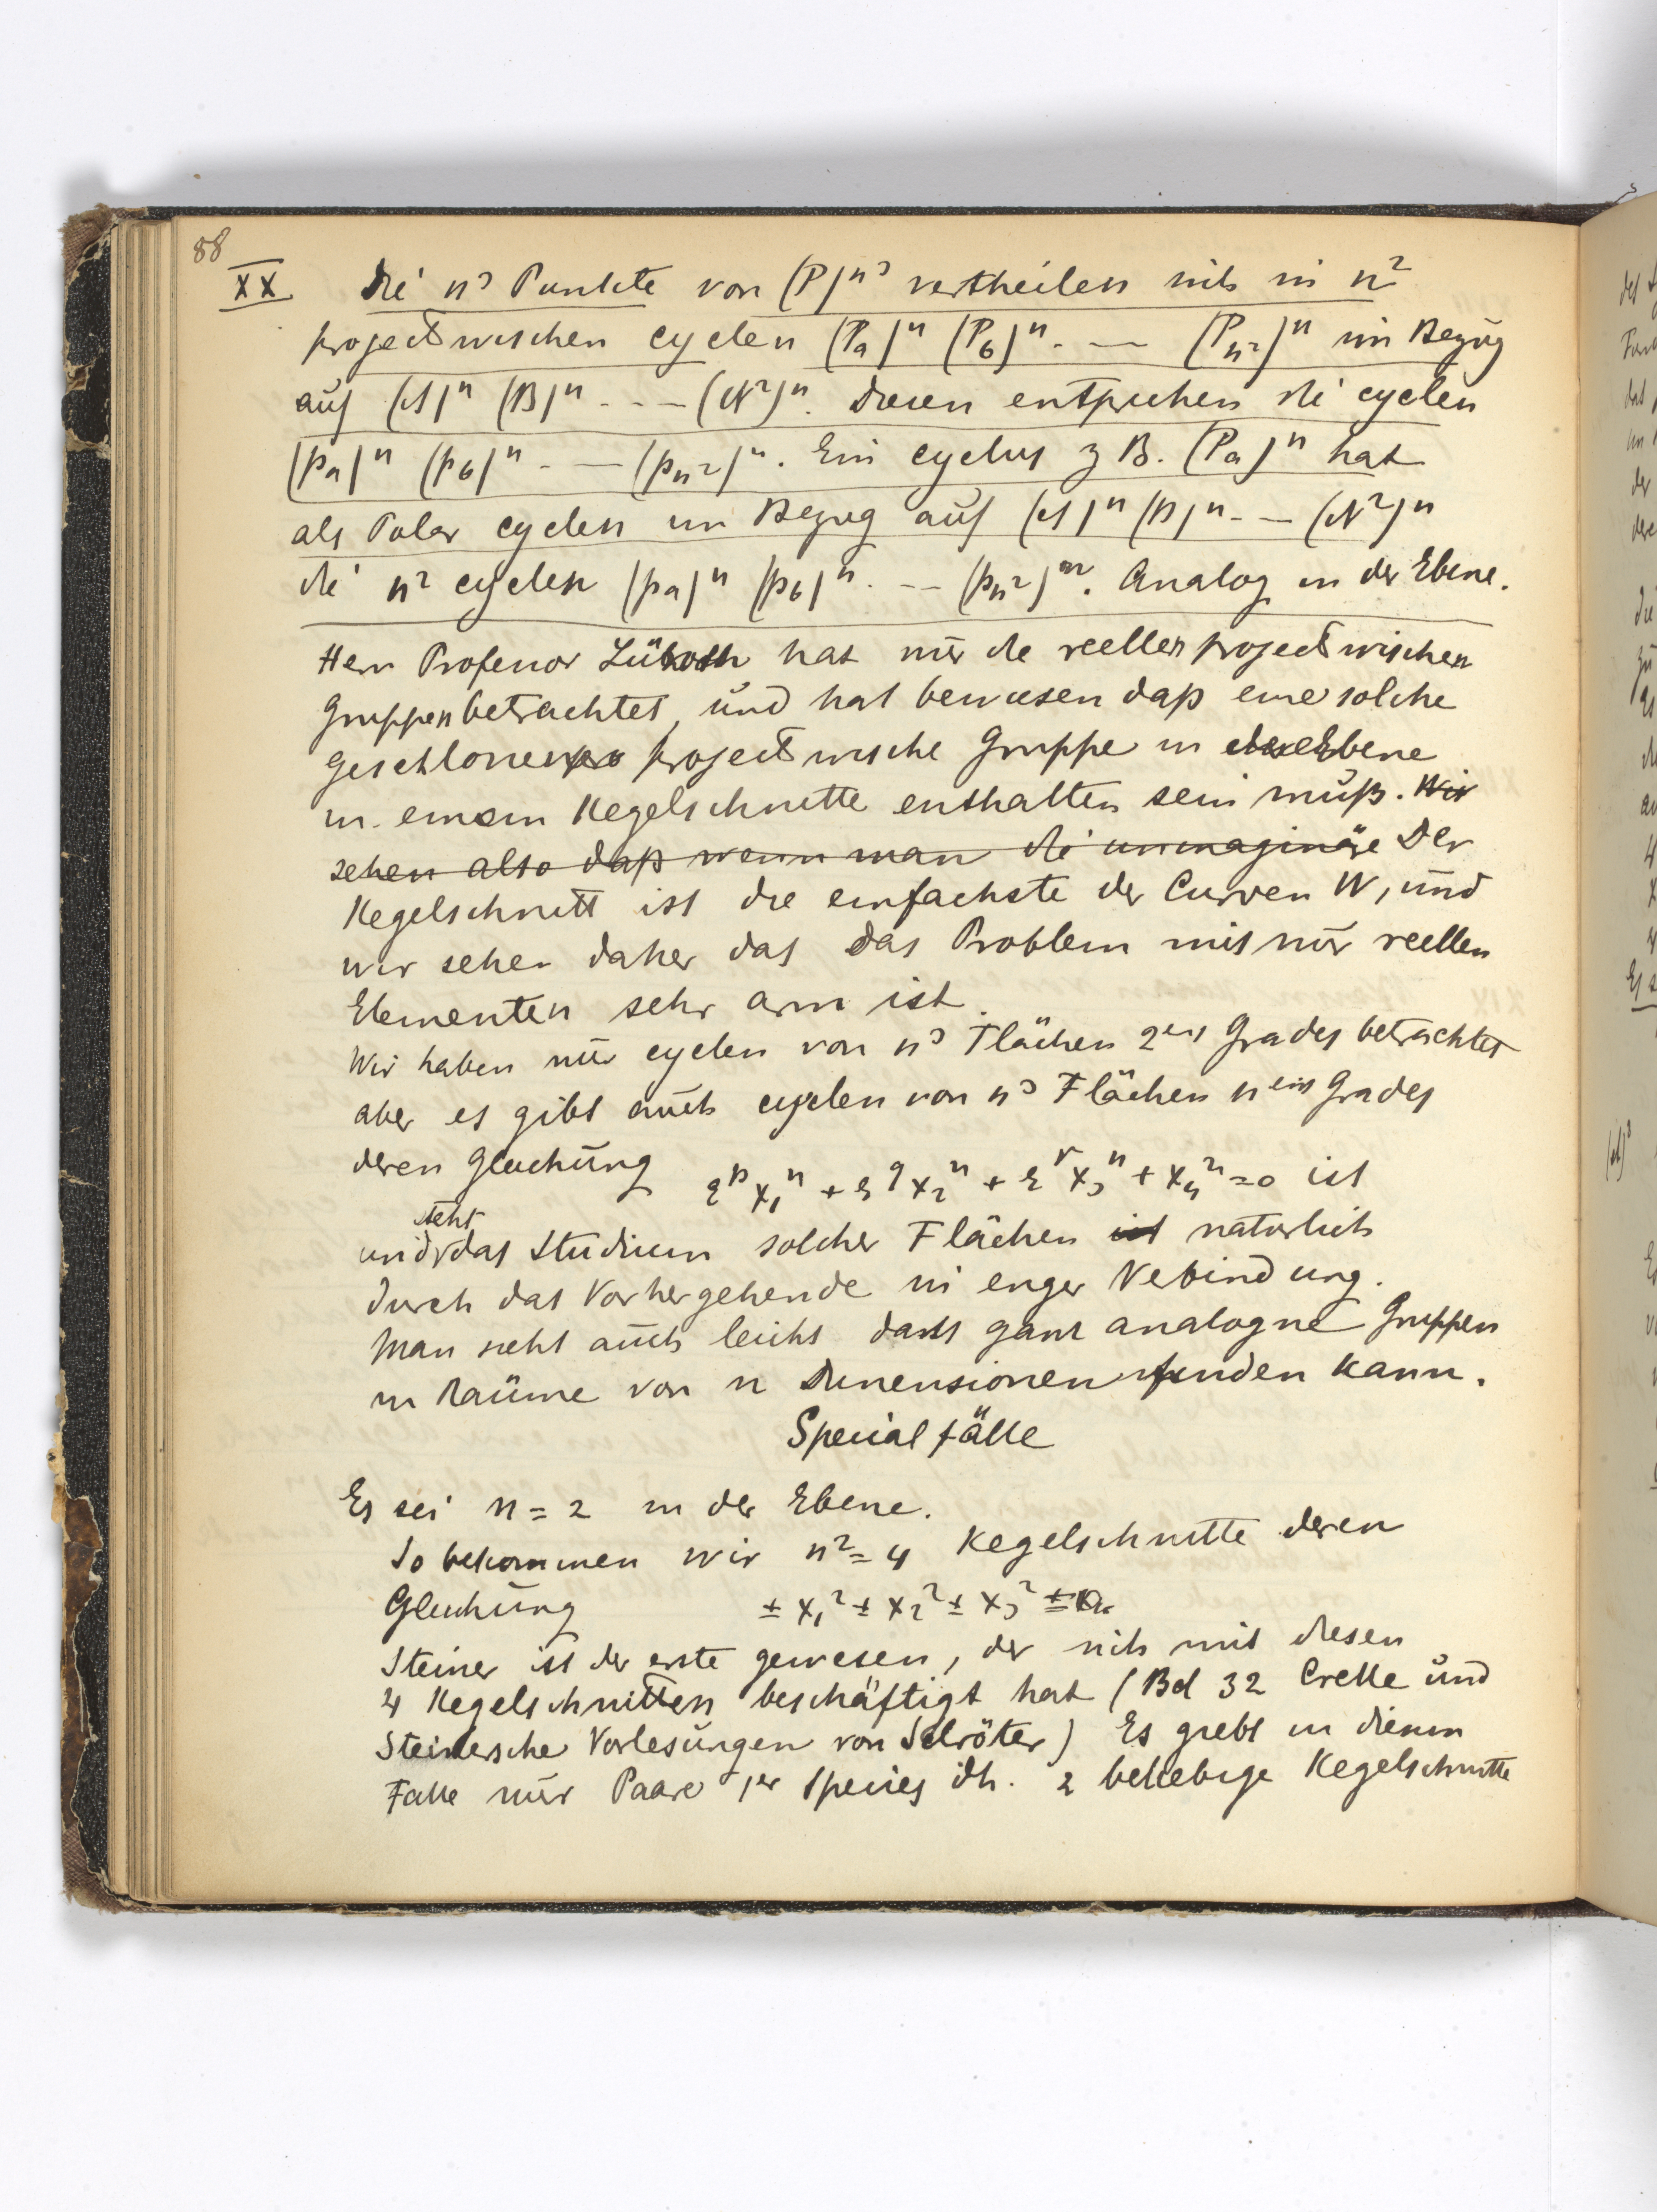 88
XX Die n³ Punkte von (P)ⁿ³ vertheilen sich in n²
projectivischen cyclen (Pa)ⁿ (Pb)ⁿ . — (Pn²)ⁿ im Bezug
auf (A)ⁿ (B)ⁿ - - — (N²)ⁿ. Diesen entsprechen die cyclen
(pa)ⁿ (pb)ⁿ - — (pn²)ⁿ. Ein cyclus z B. (Pa)ⁿ hat
als Polar cyclen im Bezug auf (A)ⁿ (B)ⁿ - — (N²)ⁿ
die n² cyclen (pa)ⁿ (pb)ⁿ . -- (pn²)ⁿ. Analog in der Ebene.
Herr Professor Lüroth hat nur die reellen projectivischen
Gruppen betrachtet, und hat bewiesen daß eine solche
geschlossene projectivische Gruppe in der Ebene
in einem Kegelschnitte enthalten sein muß. Wir
sehen also daß wenn man die immaginäre Der
Kegelschnitt ist die einfachste der Curven W, und
wir sehen daher das das Problem mit nur reellen
Elementen sehr arm ist.
Wir haben nur cyclen von n³ Flächen 2ten Grades betrachtet
aber es gibt auch cyclen von n³ Flächen nten Grades
deren Gleichung εᵖx₁ⁿ + ε^q x₂ⁿ + εʳx₃ⁿ + x₄ⁿ = 0 ist
steht
und das Studium solcher Flächen ist naturlich
durch das Vorhergehende in enger Verbindung.
Man sieht auch leicht dass ganz analogne Gruppen
in Raüme von n Dimensionen finden kann.
Specialfälle
Es sei n = 2 in der Ebene.
So bekommen wir n² = 4 Kegelschnitte deren
Gleichung ± x₁² ± x₂² ± x₃² = 0.
Steiner ist der erste gewesen, der sich mit diesen
4 Kegelschnitten beschäftigt hat (Bd 32 Crelle und
Steinersche Vorlesungen von Schröter) Es giebt in diesem
Falle nur Paare 1er Species dh. 2 beliebige Kegelschnitte